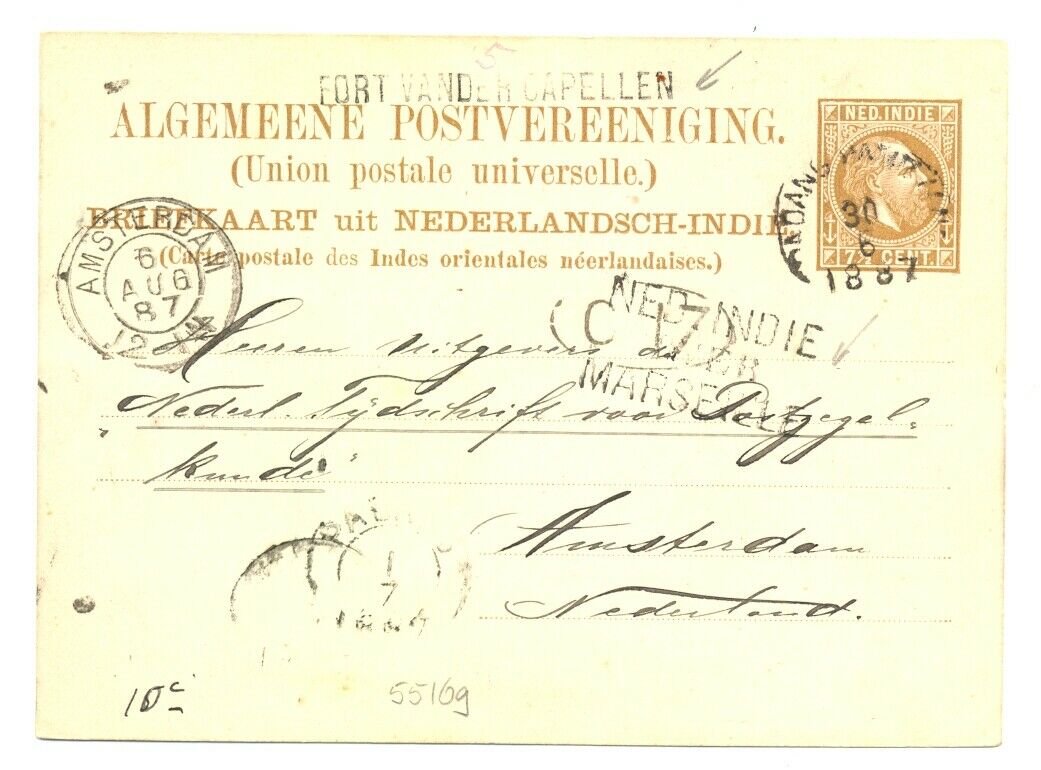 5
FORT VAN DER CAPELLEN
ALGEMEENE POSTVEREENIGING.
(Union postale universelle.)
BRIEFKAART uit NEDERLANDSCH-INDIË
(Carte postale des Indes orientales néerlandaises.)
NED. INDIE
7½ CENT.
30
6
1887
AMSTERDAM
6
AUG
87
NED-INDIE
MARSEILLE
Heeren Uitgevers der
Nederl. Tijdschrift voor Postzegel„
kunde"
1
7
Amsterdam
Nederland.
10c
55169